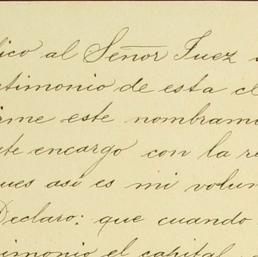 lico al Señor Juez
timonio de esta cl
rme este nombram
te encargo con la r
ues así es mi volun
Declaro: que cuando
imonio el capital